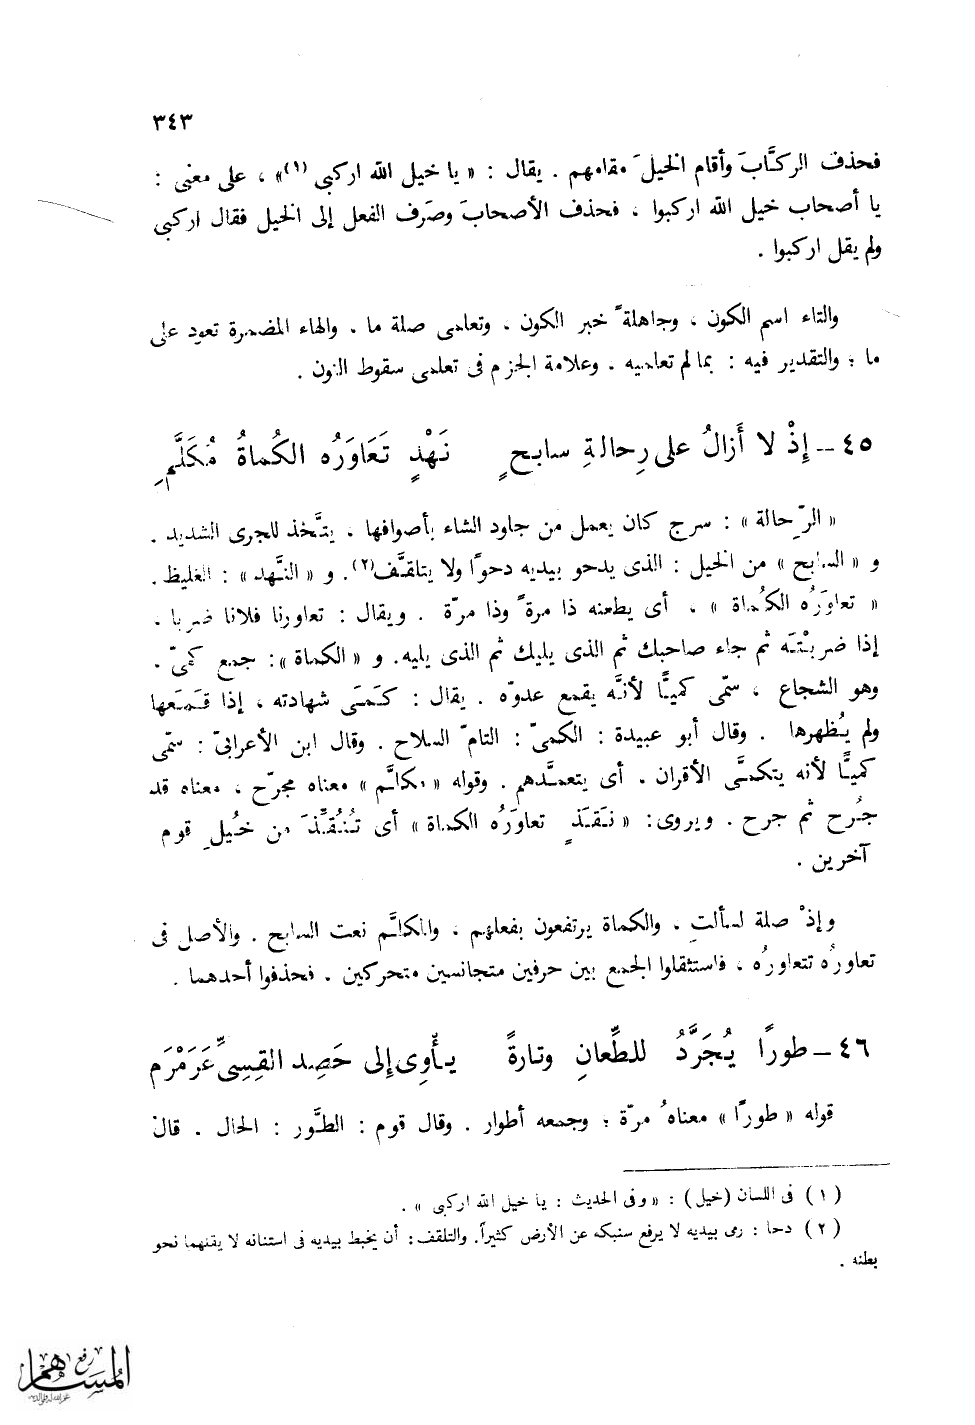 ٣٤٣
فحذف الركَّابَ وأقام الخيلَ مقامهم . يقال : « يا خيل الله اركبى (١)» ، على معنى :
يا أصحاب خيل الله اركبوا ، فحذف الأصحابَ وصَرف الفعل إلى الخيل فقال اركبى
ولم يقل اركبوا .
والتاء اسم الكون ، وجاهلةً خبر الكون ، وتعلمى صلة ما . والهاء المضمرة تعود على
ما ؛ والتقدير فيه : بما لم تعلميه . وعلامة الجزم فى تعلمى سقوط النون .
٤٥ — إِذْ لا أَزالُ على رِحالةِ سابحٍ نَهْدٍ تَعَاوَرُه الكُماةُ مُكَلَّمِ
« الرِّحالة » : سرج كان يعمل من جلود الشاء بأصوافها ، يتَّخذ للجرى الشديد .
و « السابح » من الخيل : الذى يدحو بيديه دحوًا ولا يتلقَّف(٢). و « النَّهد » : الغليظ .
« تعاوَرُه الكُماة » ، أى يطعنه ذا مرةً وذا مرّة . ويقال : تعاورنا فلانا ضربا ،
إذا ضربْتَه ثم جاء صاحبك ثم الذى يليك ثم الذى يليه. و « الكماة »: جمع كمىّ .
وهو الشجاع ، سمّى كميًّا لأنَّه يقمع عدوّه . يقال : كَمَى شهادته ، إذا قَمَعها
ولم يُظهرها . وقال أبو عبيدة : الكمىّ : التامّ السلاح . وقال ابن الأعرابىّ : سمّى
كميًّا لأنه يتكمَّى الأقران . أى يتعمَّدهم . وقوله « مكلَّم » معناه مجرّح ، معناه قد
جُرح ثم جرح . ويروى : « نَقَذٍ تعاوَرُه الكماة » أى تُنُقِّذَ من خَيْلِ قوم
آخرين .
وإذْ صلة لسألتِ . والكماة يرتفعون بفعلهم ، والمكلَّم نعت السابح . والأصل فى
تعاورُه تتعاورُه ، فاستثقلوا الجمع بين حرفين متجانسين متحركين . فحذفوا أحدهما .
٤٦ — طورًا يُجَرَّدُ للطِّعانِ وتارةً يأْوِى إلى حَصِدِ القِسِىِّ عَرَمْرَمِ
قوله « طورًا » معناهُ مرّة ؛ وجمعه أطوار . وقال قوم : الطَّور : الحال . قال
(١) فى اللسان (خيل) : « وفى الحديث : يا خيل الله اركبى » .
(٢) دحا : رمى بيديه لا يرفع سنبكه عن الأرض كثيراً. والتلقف: أن يخبط بيديه فى استنانه لا يقلهما نحو
بطنه .
رفع
المساهم